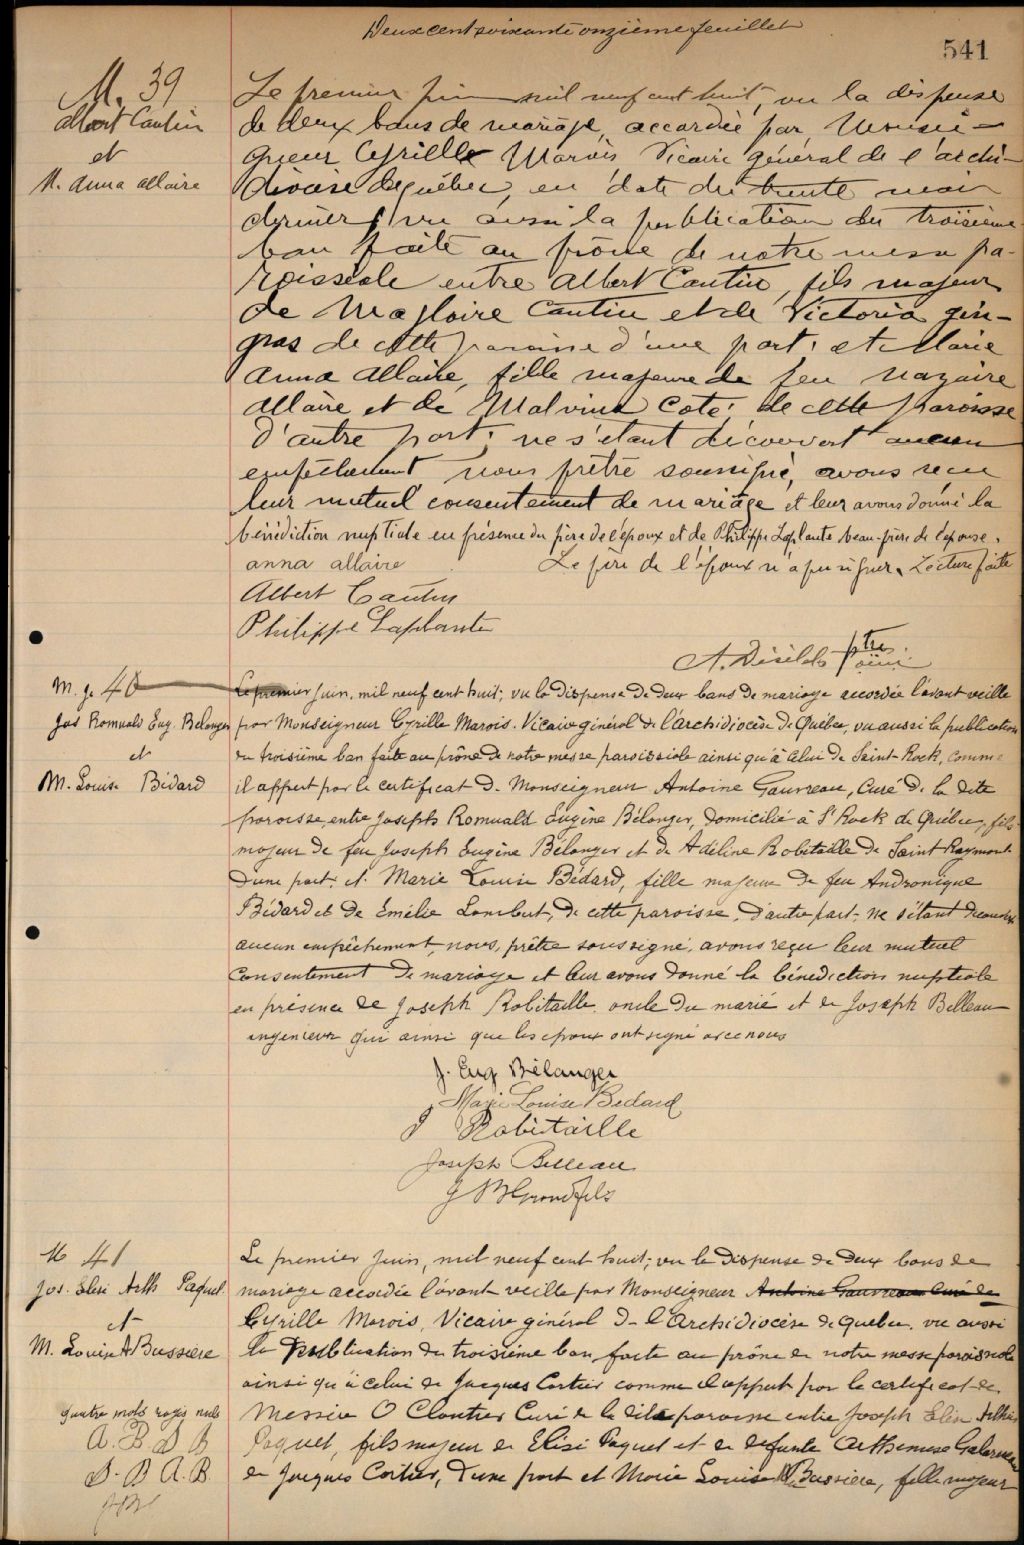 Deux cent soixante onzième feuillet
541
M. 39
Albert Cantin
et
M. Anna Allaire
Le premier juin mil neuf cent huit, vu la dispense
de deux bans de mariage, accordée par Monsei-
gneur Cyrille Marois Vicaire général de l'archi-
diocèse de Québec, en date du trente mai
dernier, vu aussi la publication du troisième
ban faite au prône de notre messe pa-
roissiale entre Albert Cantin, fils majeur
de Magloire Cantin et de Victoria Gin-
gras de cette paroisse d'une part; et Marie
Anna Allaire, fille majeure de feu Nazaire
Allaire et de Malvina Coté, de cette paroisse
d'autre part; ne s'étant découvert aucun
empêchement nous prêtre soussigné, avons reçu
leur mutuel consentement de mariage et leur avons donné la
bénédiction nuptiale en présence du père de l'époux et de Philippe Laplante beau-frère de l'épouse.
anna allaire Le père de l'époux n'a pu signer. Lecture faite
Albert Cantin
Philippe Laplante
A. Désilets ptre
M. 40
Jos Romuald Eug. Belanger
et
M. Louise Bédard
Le premier juin, mil neuf cent huit; vu la dispense de deux bans de mariage accordée l'avant veille
par Monseigneur Cyrille Marois, Vicaire général de l'Archidiocèse de Québec, vu aussi la publication
du troisième ban faite au prône de notre messe paroissiale ainsi qu'à celui de Saint-Roch, comme
il appert par le certificat de Monseigneur Antoine Gauvreau, Curé de la dite
paroisse, entre Joseph Romuald Eugène Bélanger, domicilié à St Roch de Québec, fils
majeur de feu Joseph Eugène Bélanger et de Adéline Robitaille de Saint-Raymond
d'une part; et Marie Louise Bédard, fille majeure de feu Andronique
Bédard et de Emélie Lambert, de cette paroisse, d'autre part; ne s'étant découvert
aucun empêchement, nous, prêtre soussigné, avons reçu leur mutuel
consentement de mariage et leur avons donné la bénédiction nuptiale
en présence de Joseph Robitaille oncle du marié et de Joseph Belleau
ingénieur qui ainsi que les epoux ont signé avec nous
J. Eug Bélanger
Marie Louise Bedard
J Robitaille
Joseph Belleau
J B Grondfils
M 41
Jos. Elisé Arth Paquet
et
M. Louise A Bussiere
quatre mots rayés nuls
A. B. D B
D. B A. B.
Le premier juin, mil neuf cent huit; vu la dispense de deux bans de
mariage accordée l'avant veille par Monseigneur Antoine Gauvreau curé de
Cyrille Marois, Vicaire général de l'Archidiocèse de Québec, vu aussi
la publication du troisième ban faite au prône de notre messe paroissiale
ainsi qu'à celui de Jacques Cartier comme il appert par le certificat de
Messire O Cloutier Curé de la dite paroisse entre Joseph Elisé Arthur
Paquet, fils majeur de Elisé Paquet et de defunte Arthemise Galarneau
de Jacques Cartier, d'une part et Marie Louise A Bussiere, fille majeur